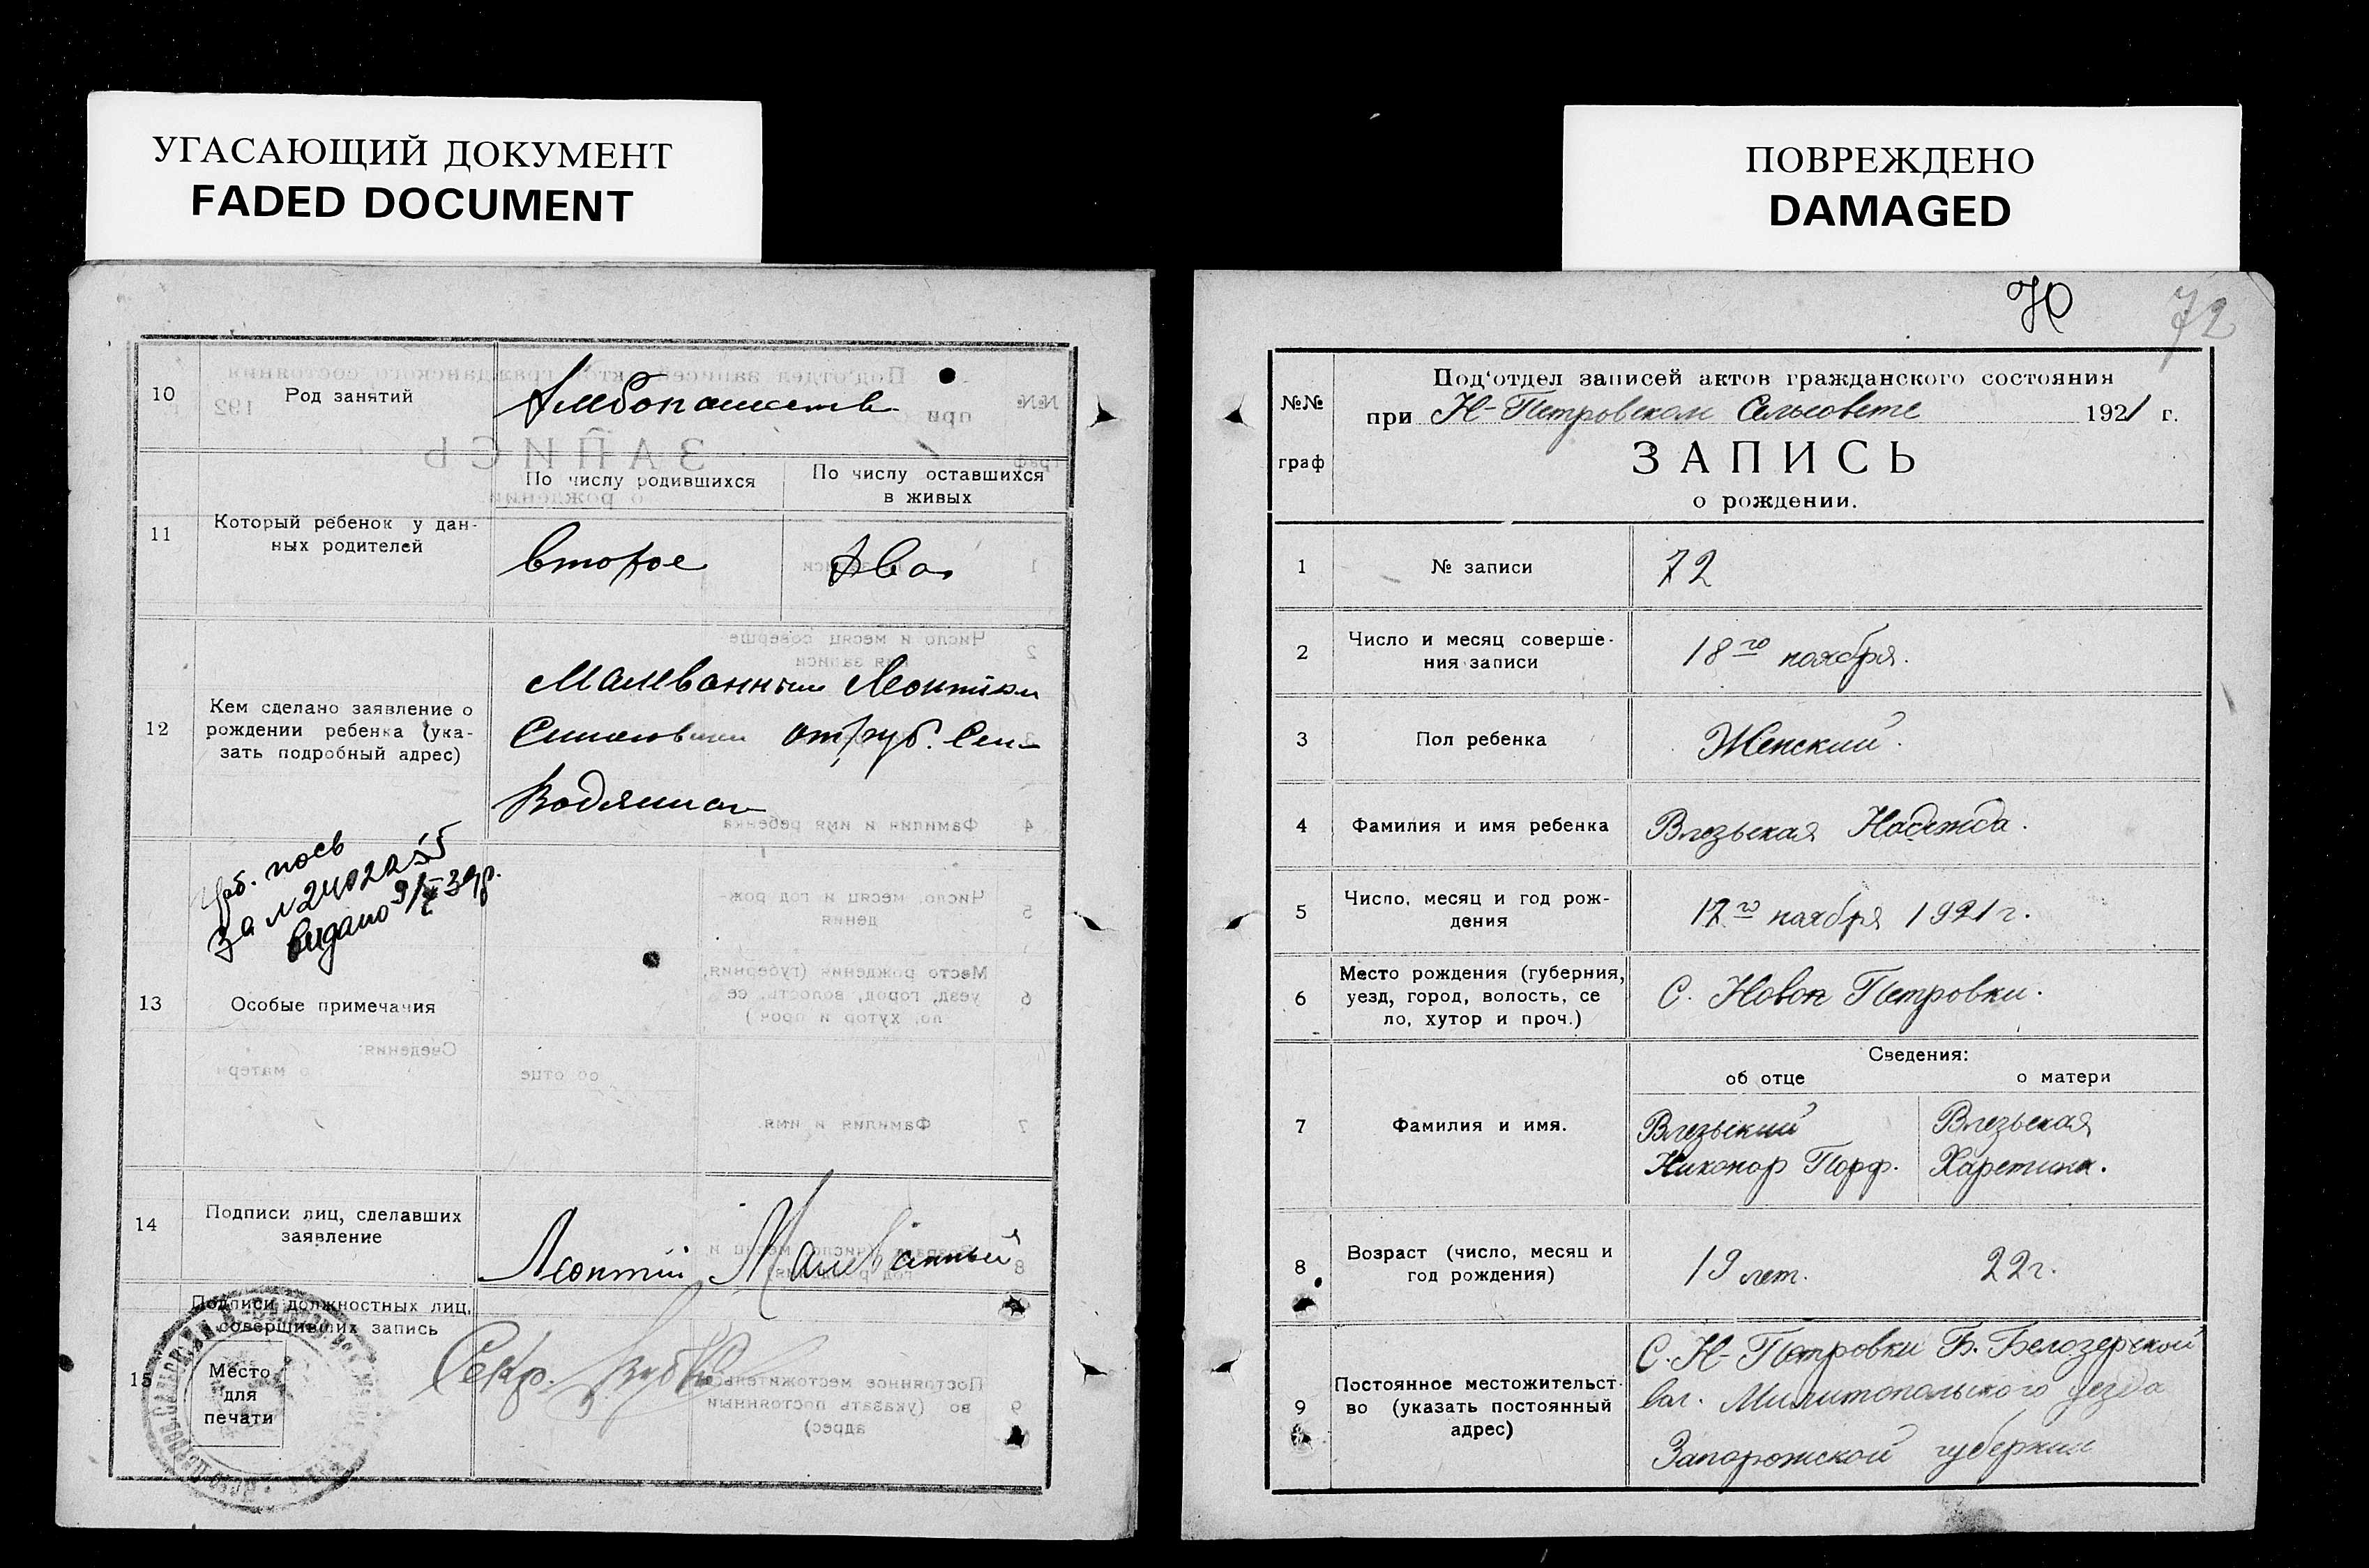 УГАСАЮЩИЙ ДОКУМЕНТ
FADED DOCUMENT
10
Род занятий
Хлебопашеств.
11
Который ребенок у дан-
ных родителей
По числу родившихся
По числу оставшихся
в живых
второе
два
12
Кем сделано заявление о
рождении ребенка (ука-
зать подробный адрес)
Малеванным Леонтием
отруб. Сем-
Водяная
за № 24022
видано
13
Особые примечания
14
Подписи лиц, сделавших
заявление
Леонтий Малеванный
15
Подписи должностных лиц,
совершивших запись
Место
для
печати
Секр.
ПОВРЕЖДЕНО
DAMAGED
70
72
№№
граф
Под'отдел записей актов гражданского состояния
при Н-Петровском Сельсовете 1921 г.
ЗАПИСЬ
о рождении.
1
№ записи
72
2
Число и месяц соверше-
ния записи
18го ноября.
3
Пол ребенка
Женский.
4
Фамилия и имя ребенка
Влезьская Надежда.
5
Число, месяц и год рож-
дения
17го ноября 1921 г.
6
Место рождения (губерния,
уезд, город, волость, се
ло, хутор и проч.)
С. Новоп Петровки.
Сведения:
об отце
о матери
7
Фамилия и имя.
Влезьский
Никонор Порф.
Влезьская
Харетина.
8
Возраст (число, месяц и
год рождения)
19 лет.
22 г.
9
Постоянное местожительст-
во (указать постоянный
адрес)
С. Н-Петровки Б. Белозерской
вол. Милитопольского уезда
Запорожской губернии